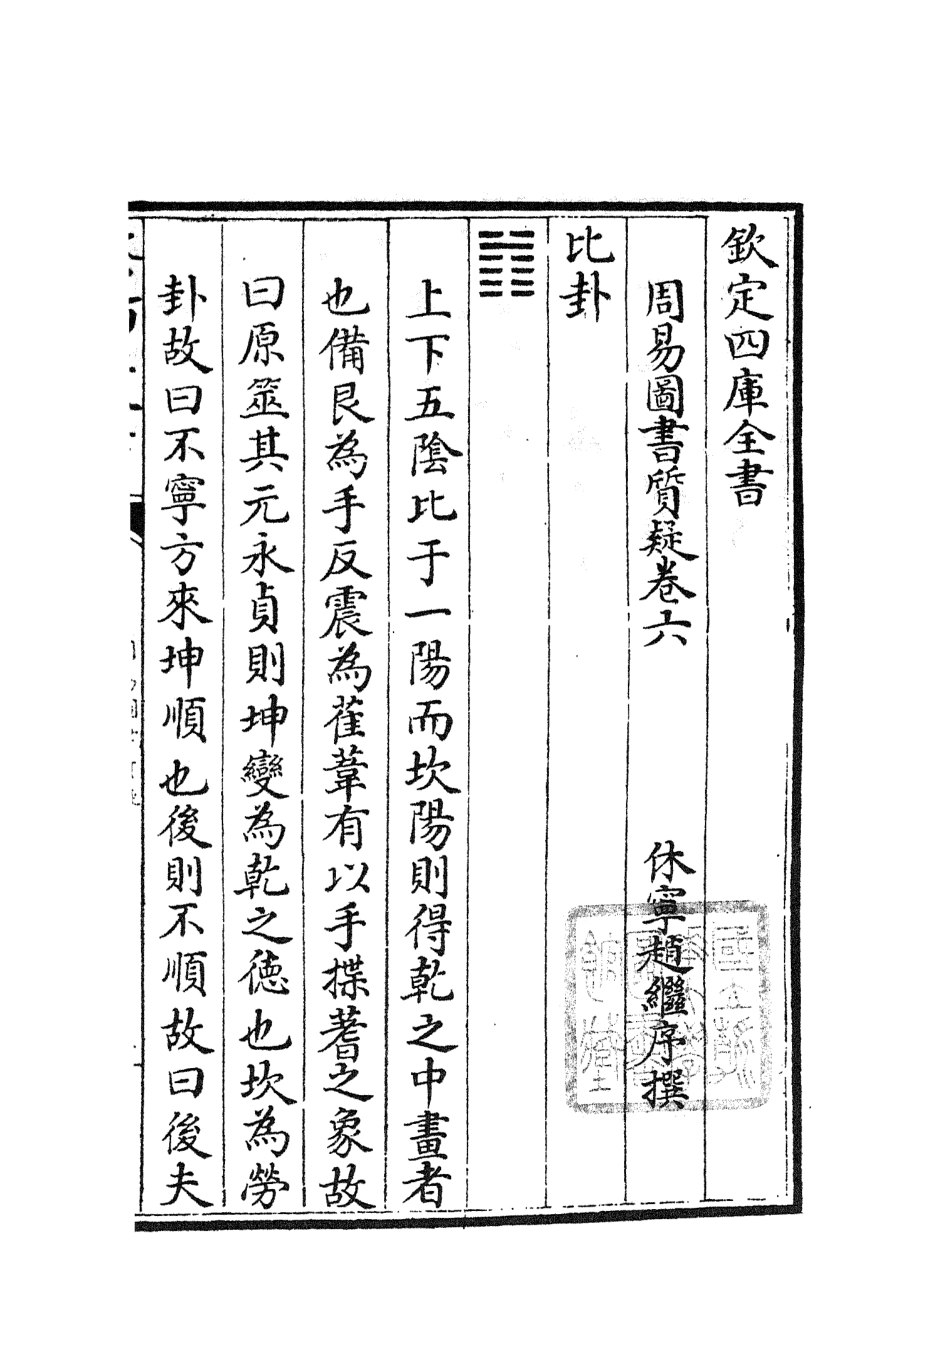 欽定四庫全書
周易圖書質疑卷六
休寧趙繼序撰
比卦
上下五陰比于一陽而坎陽則得乾之中畫者
也備艮為手反震為萑葦有以手揲蓍之象故
曰原筮其元永貞則坤變為乾之德也坎為勞
卦故曰不寧方來坤順也後則不順故曰後夫